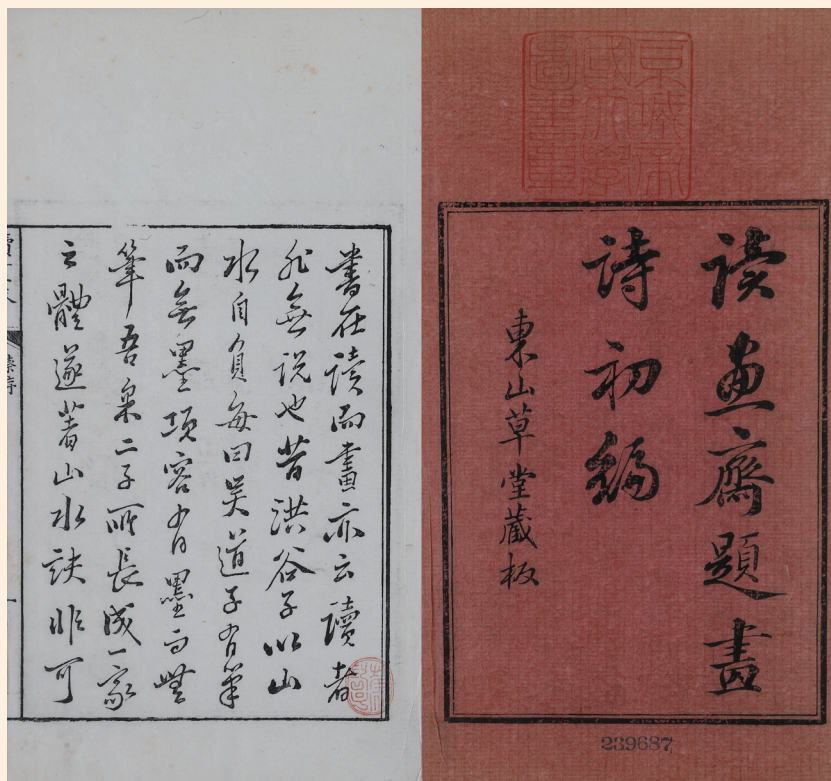 京城帝
國大學
圖書章
讀畫齋題畫
詩初編
東山草堂藏板
239687
書在讀而畫亦云讀者
非無説也昔洪谷子以山
水自負每曰吳道子有筆
而無墨項容有墨而無
筆吾采二子所長成一家
之體遂著山水訣非可